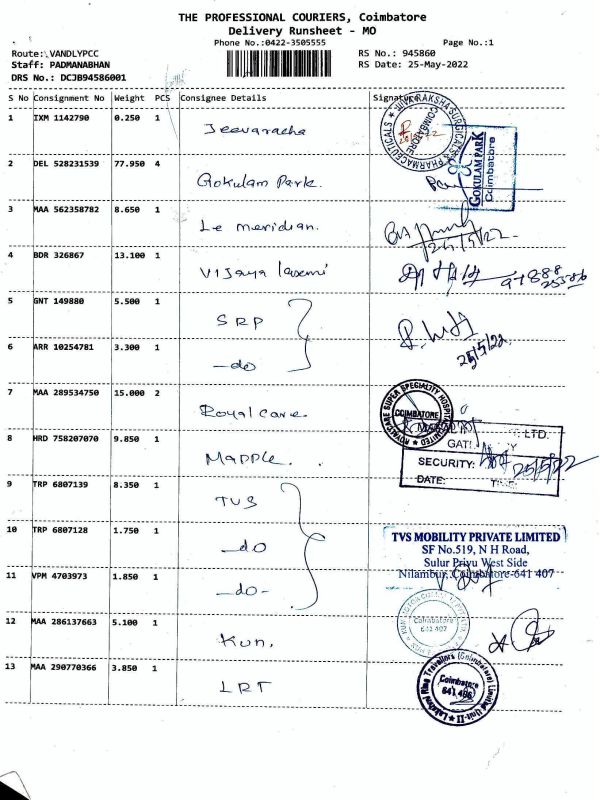 THE PROFESSIONAL COURIERS, Coimbatore
Delivery Runsheet - MO
Phone No.:0422-3505555 Page No.:1
Route: VANDLYPCC RS No.: 945860
Staff: PADMANABHAN RS Date: 25-May-2022
DRS No.: DCJB94586001
S No Consignment No Weight PCS Consignee Details Signature
1 IXM 1142790 0.250 1 Jeevaracha
2 DEL 528231539 77.950 4 Gokulam Park.
GOKULAM PARK
Coimbatore
3 MAA 562358782 8.650 1 Le meridian.
25/5/22
4 BDR 326867 13.100 1 Vijaya laxmi
5 GNT 149880 5.500 1 SRP
6 ARR 10254781 3.300 1 -do
25/5/22
7 MAA 289534750 15.000 2 Royal care.
COIMBATORE
8 HRD 758207070 9.850 1 Mapple.
LTD.
SECURITY: 25/5/22
DATE:
9 TRP 6807139 8.350 1 TVS
10 TRP 6807128 1.750 1 -do
TVS MOBILITY PRIVATE LIMITED
SF No.519, N H Road,
Sulur Privu West Side
Nilambur, Coimbatore-641 407
11 VPM 4703973 1.850 1 -do-
12 MAA 286137663 5.100 1 Kun.
Coimbatore
641 407
13 MAA 290770366 3.850 1 LRT
Coimbatore